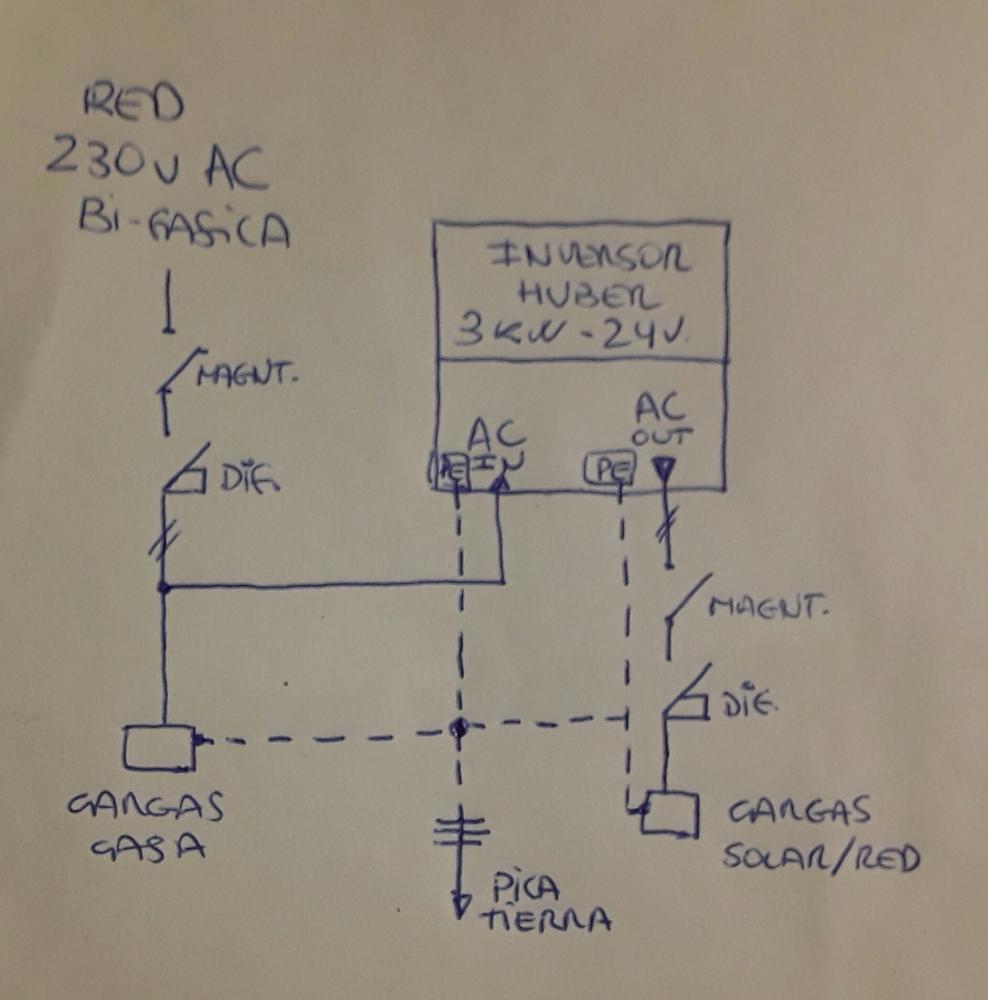 RED
230V AC
Bi-FASiCA
MAGNT.
DiF.
INVERSOR
HUBER
3KW - 24V.
PE
AC
IN
PE
AC
OUT
MAGNT.
DiF.
CARGAS
CASA
CARGAS
SOLAR/RED
PiCA
TIERRA